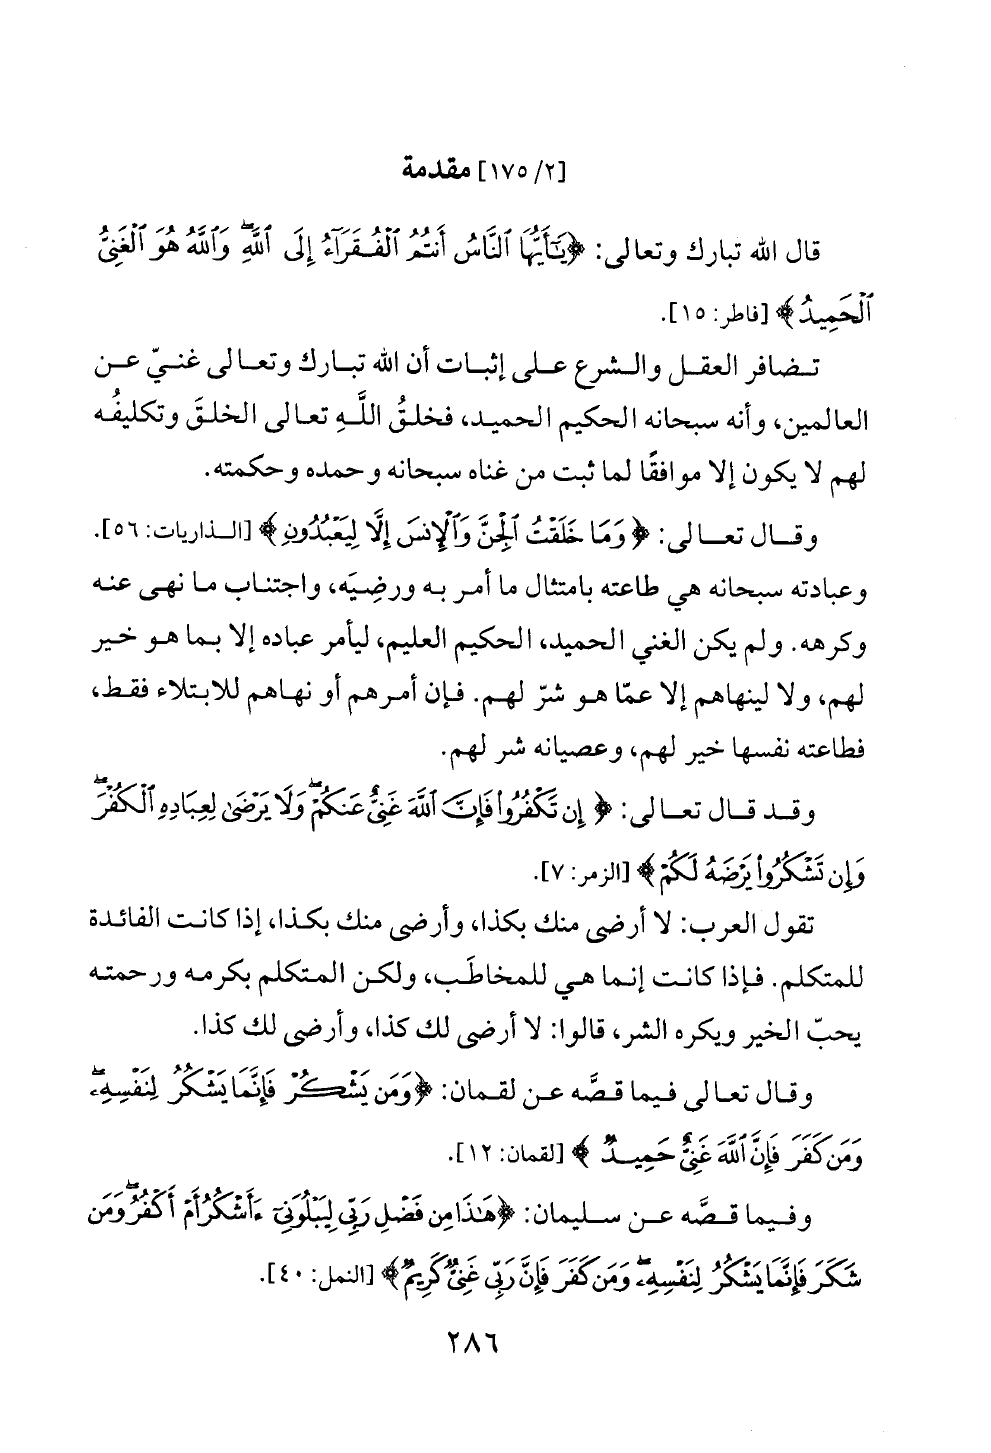 [٢/ ١٧٥] مقدمة
قال الله تبارك وتعالى: ﴿يَٰٓأَيُّهَا ٱلنَّاسُ أَنتُمُ ٱلْفُقَرَآءُ إِلَى ٱللَّهِۖ وَٱللَّهُ هُوَ ٱلْغَنِىُّ
ٱلْحَمِيدُ﴾ [فاطر: ١٥].
تضافر العقل والشرع على إثبات أن الله تبارك وتعالى غنيّ عن
العالمين، وأنه سبحانه الحكيم الحميد، فخلقُ اللَّهِ تعالى الخلقَ وتكليفُه
لهم لا يكون إلا موافقًا لما ثبت من غناه سبحانه وحمده وحكمته.
وقال تعالى: ﴿وَمَا خَلَقْتُ ٱلْجِنَّ وَٱلْإِنسَ إِلَّا لِيَعْبُدُونِ﴾ [الذاريات: ٥٦].
وعبادته سبحانه هي طاعته بامتثال ما أمر به ورضِيَه، واجتناب ما نهى عنه
وكرهه. ولم يكن الغني الحميد، الحكيم العليم، ليأمر عباده إلا بما هو خير
لهم، ولا لينهاهم إلا عمّا هو شرّ لهم. فإن أمرهم أو نهاهم للابتلاء فقط،
فطاعته نفسها خير لهم، وعصيانه شر لهم.
وقد قال تعالى: ﴿إِن تَكْفُرُوا۟ فَإِنَّ ٱللَّهَ غَنِىٌّ عَنكُمْۖ وَلَا يَرْضَىٰ لِعِبَادِهِ ٱلْكُفْرَۖ
وَإِن تَشْكُرُوا۟ يَرْضَهُ لَكُمْ﴾ [الزمر: ٧].
تقول العرب: لا أرضى منك بكذا، وأرضى منك بكذا، إذا كانت الفائدة
للمتكلم. فإذا كانت إنما هي للمخاطَب، ولكن المتكلم بكرمه ورحمته
يحبّ الخير ويكره الشر، قالوا: لا أرضى لك كذا، وأرضى لك كذا.
وقال تعالى فيما قصَّه عن لقمان: ﴿وَمَن يَشْكُرْ فَإِنَّمَا يَشْكُرُ لِنَفْسِهِۦۖ
وَمَن كَفَرَ فَإِنَّ ٱللَّهَ غَنِىٌّ حَمِيدٌ﴾ [لقمان: ١٢].
وفيما قصَّه عن سليمان: ﴿هَٰذَا مِن فَضْلِ رَبِّى لِيَبْلُوَنِىٓ ءَأَشْكُرُ أَمْ أَكْفُرُۖ وَمَن
شَكَرَ فَإِنَّمَا يَشْكُرُ لِنَفْسِهِۦۖ وَمَن كَفَرَ فَإِنَّ رَبِّى غَنِىٌّ كَرِيمٌ﴾ [النمل: ٤٠].
٢٨٦